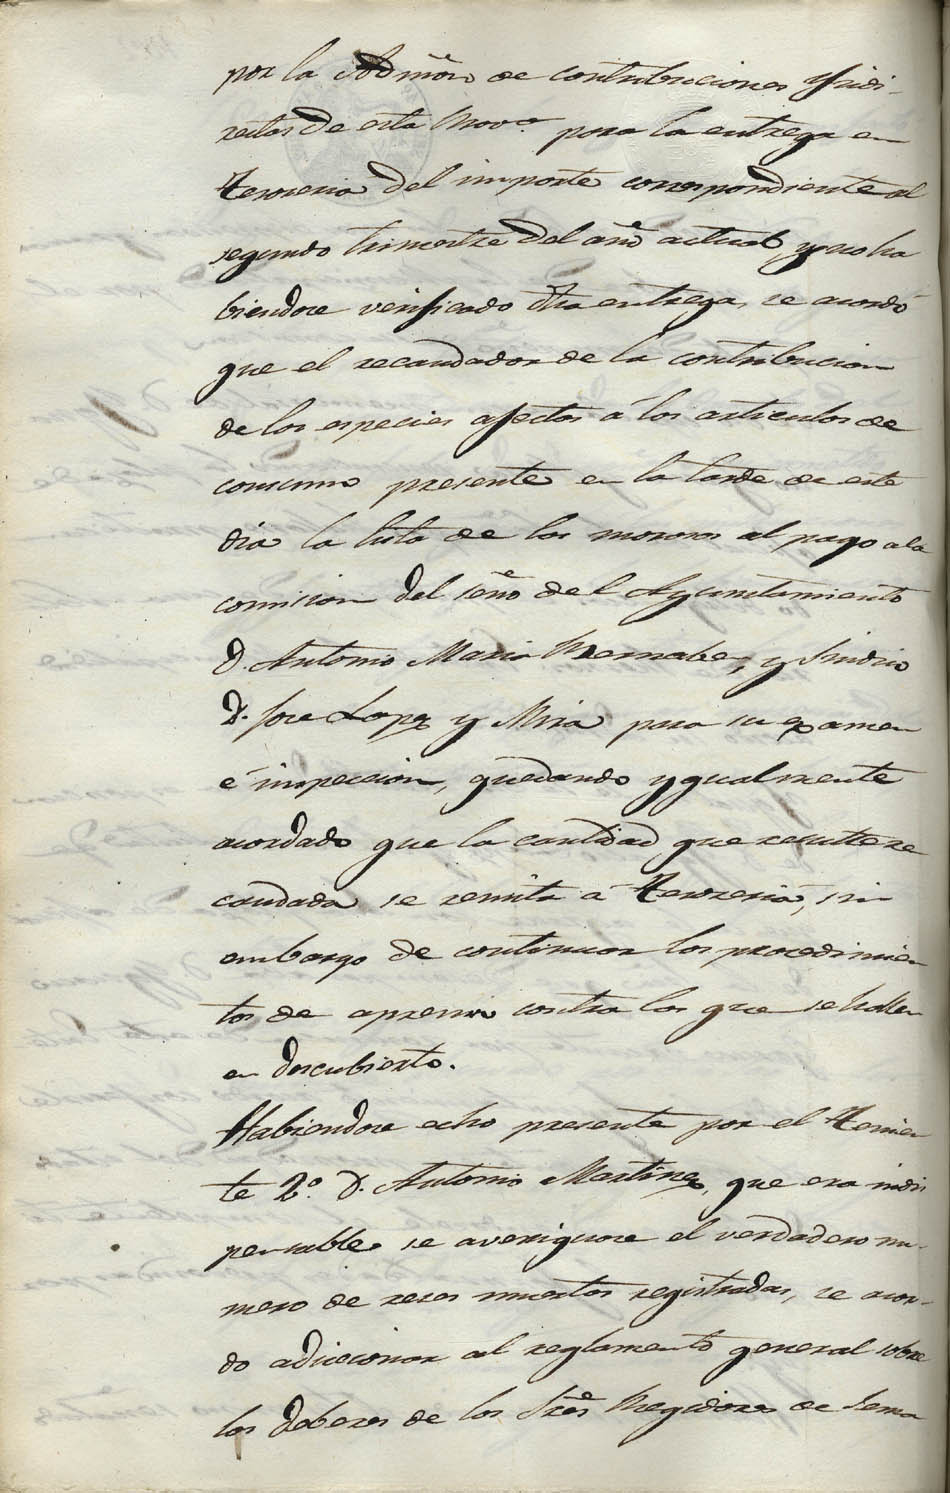 por la Admōn de contribuciones Yndi-
rectas de esta Prova para la entrega en
Tesoreria del importe correspondiente al
segundo trimestre del año actual, y no ha
biendose verificado dha entrega, se acordó
que el recaudador de la contribucion
de las especies afectas á los articulos de
consumo presente en la tarde de este
dia la lista de los morosos al pago a la
comision del señor del Ayuntamiento
D. Antonio Maria Bernabeu, y Sindico
D. Jose Lopez y Mira para su examen
é inspeccion, quedando ygualmente
acordado que la cantidad que resulte re
caudada se remita á Tesoreria, sin
embargo de continuar los procedimien
tos de apremio contra los que se hallen
en descubierto.
Habiendose echo presente por el Tenien
te 2º. D. Antonio Martinez, que era indis
pensable se averiguase el verdadero nu-
mero de reses muertas registradas, se acor-
do adiccionar al reglamento general sobre
los deberes de los Sres Regidores de Sema